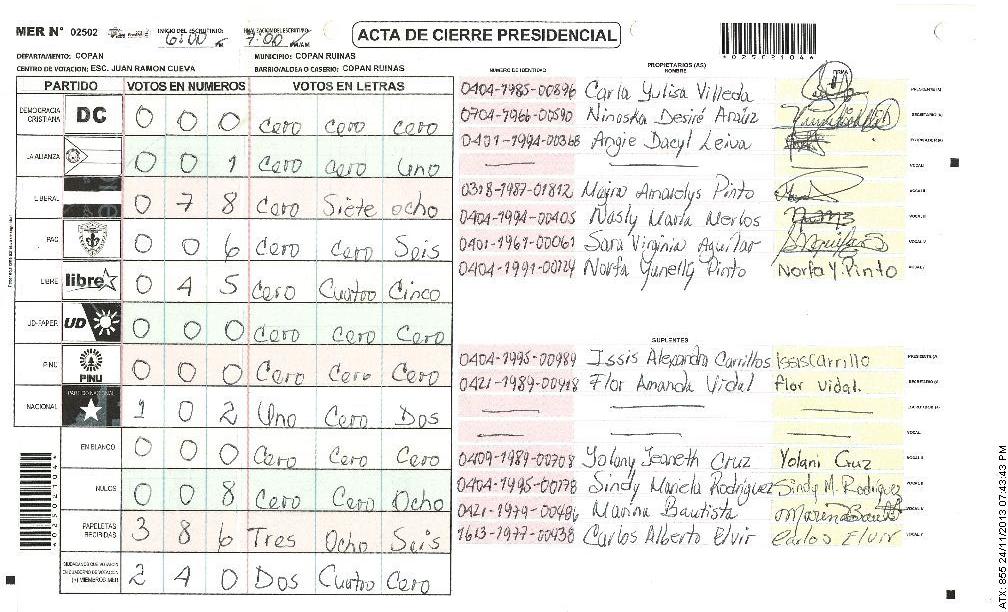 MER N° 02502
INICIO DEL ESCRUTINIO: 6:00 PM
7:00 PM/AM
ACTA DE CIERRE PRESIDENCIAL
*02502104*
DEPARTAMENTO: COPAN
MUNICIPIO: COPAN RUINAS
CENTRO DE VOTACION: ESC. JUAN RAMON CUEVA
BARRIO/ALDEA O CASERIO: COPAN RUINAS
PARTIDO VOTOS EN NUMEROS VOTOS EN LETRAS
DEMOCRACIA CRISTIANA DC 0 0 0 Cero Cero Cero
LA ALIANZA 0 0 1 Cero Cero Uno
LIBERAL 0 7 8 Cero Siete ocho
PAC 0 0 6 Cero Cero Seis
LIBRE libre 0 4 5 Cero Cuatro Cinco
UD-FAPER UD 0 0 0 Cero Cero Cero
PINU PINU 0 0 0 Cero Cero Cero
NACIONAL PARTIDO NACIONAL 1 0 2 Uno Cero Dos
EN BLANCO 0 0 0 Cero Cero Cero
NULOS 0 0 8 Cero Cero Ocho
PAPELETAS RECIBIDAS 3 8 6 Tres Ocho Seis
CIUDADANOS QUE VOTARON EN CUADERNO DE VOTACION (+) MIEMBROS MER 2 4 0 Dos Cuatro Cero
*02502104*
NUMERO DE IDENTIDAD PROPIETARIOS (AS) NOMBRE FIRMA
0404-1985-00896 Carla Yulisa Villeda PRESIDENTE (A)
0704-1966-00590 Ninoska Desiré Aráuz SECRETARIO (A)
0401-1994-00368 Angie Dacyl Leiva
VOCAL I
0318-1987-01812 Majra Amarelys Pinto VOCAL II
0404-1994-00405 Nasly María Merlos VOCAL III
0401-1961-00061 Sara Virginia Aguilar VOCAL IV
0404-1991-00724 Norfa Yunelly Pinto Norfa Y. Pinto VOCAL V
SUPLENTES
0404-1995-00989 Issis Alexandra Carrillos Issis carrillo PRESIDENTE (A)
0421-1989-00418 Flor Amanda Vidal flor Vidal. SECRETARIO (A)
VOCAL I
0409-1989-00708 Yolany Jeaneth Cruz Yolani Cruz VOCAL II
0404-1995-00178 Sindy Mariela Rodriguez Sindy M. Rodriguez VOCAL III
0421-1979-00486 Marina Bautista Marina Bautista VOCAL IV
1613-1977-00438 Carlos Alberto Elvir Carlos Elvir VOCAL V
ATX: 855 24/11/2013 07:43:43 PM